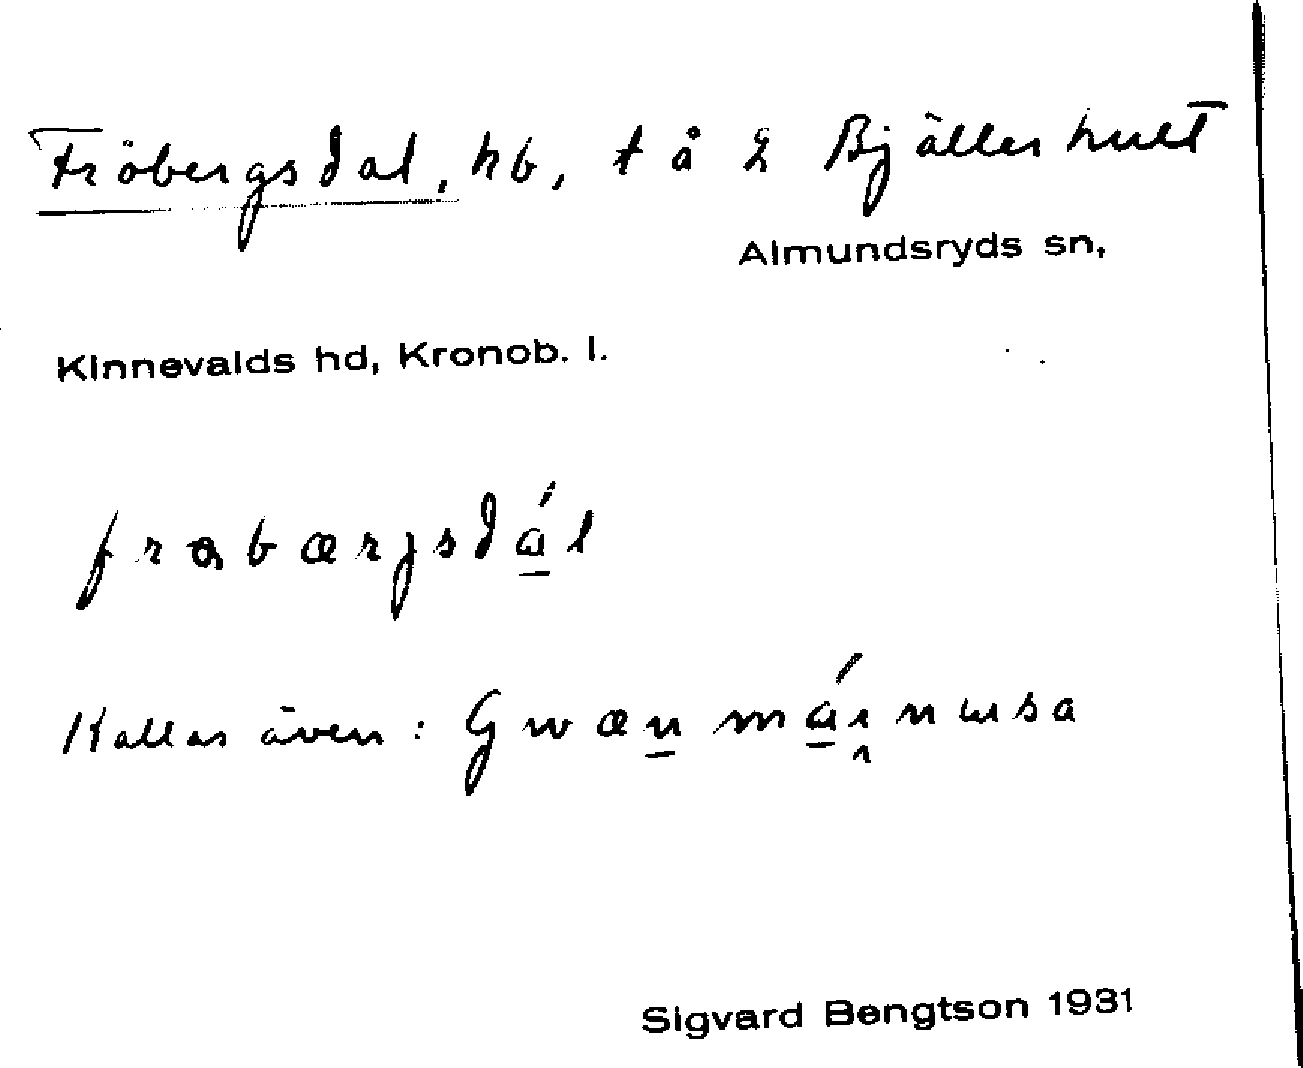 Fröbergsdal, hb, t å 2 Bjällerhult
Almundsryds sn,
Kinnevalds hd, Kronob. l.
frɵbærjsdál
Kallas även: Gwæn máinusa
Sigvard Bengtson 1931